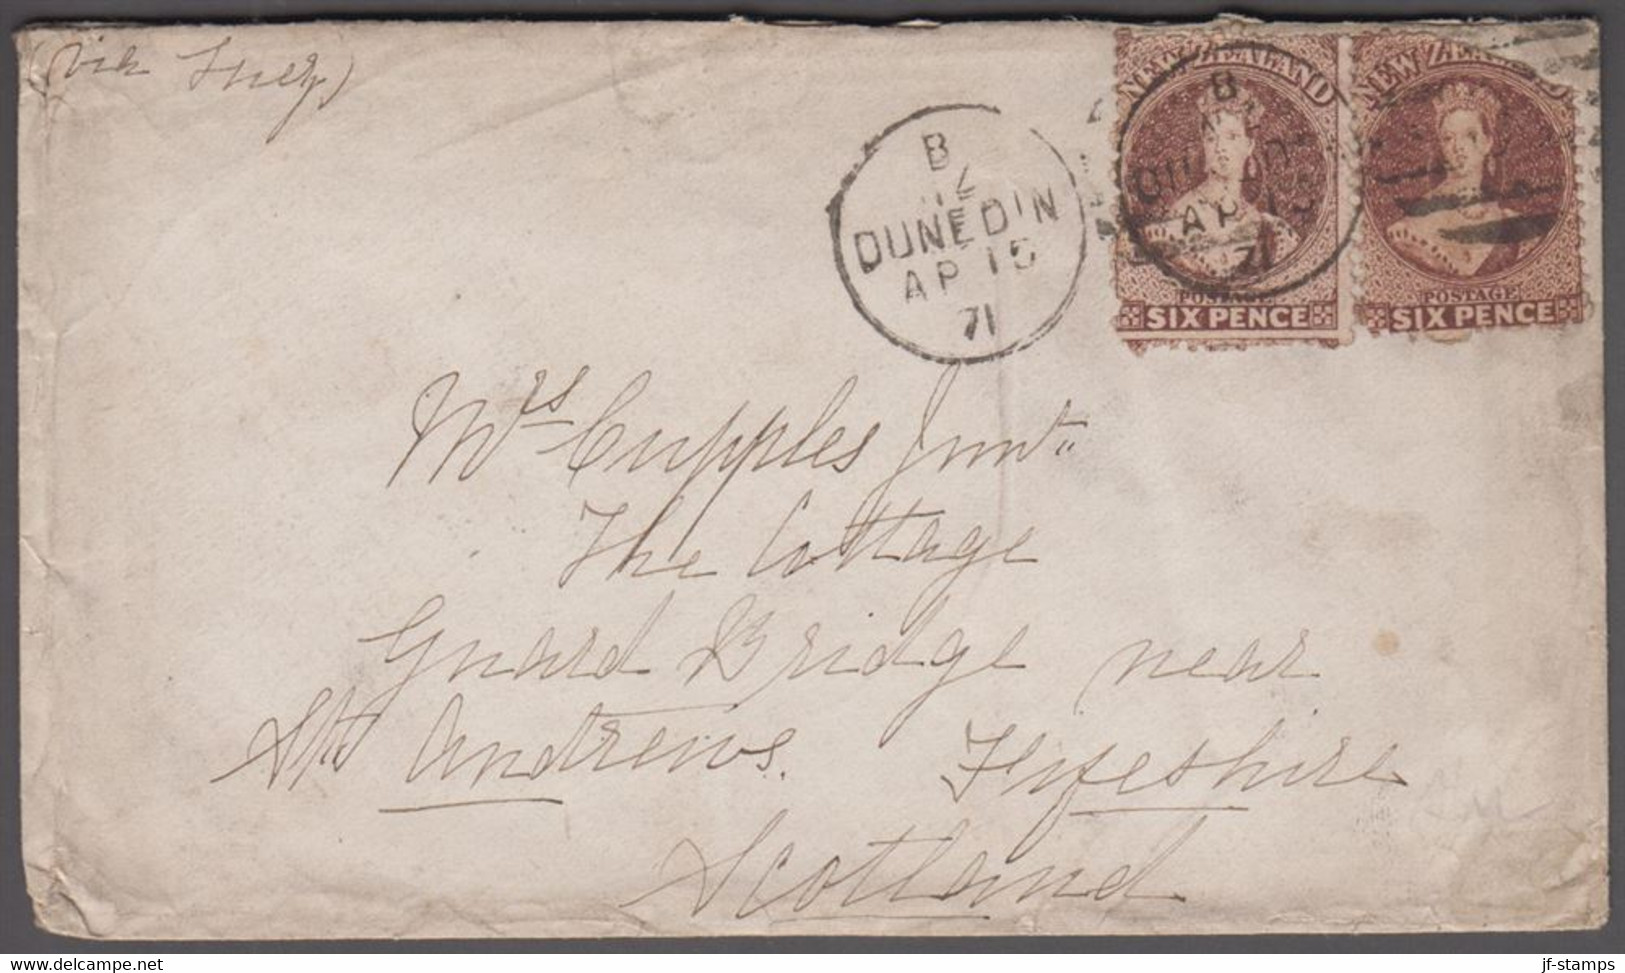 (via Suez)
B
DUNEDIN
AP 15
71
NEW ZEALAND
POSTAGE
SIX PENCE
B
AP 15
71
NEW ZEALAND
POSTAGE
SIX PENCE
Mrs Cupples Junr
The Cottage
Guard Bridge near
St Andrews. Fifeshire
Scotland
jf-stamps